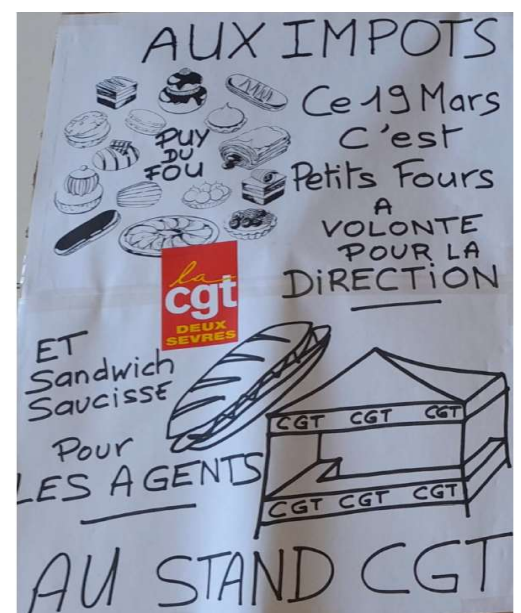 AUX IMPOTS
Ce 19 Mars
C'est
Petits Fours
A
VOLONTE
POUR LA
DiRECTiON
PUY
DU
FOU
la
cgt
DEUX
SEVRES
ET
Sandwich
SaucissE
Pour
LES AGENTS
CGT CGT CGT
CGT CGT CGT
AU STAND CGT